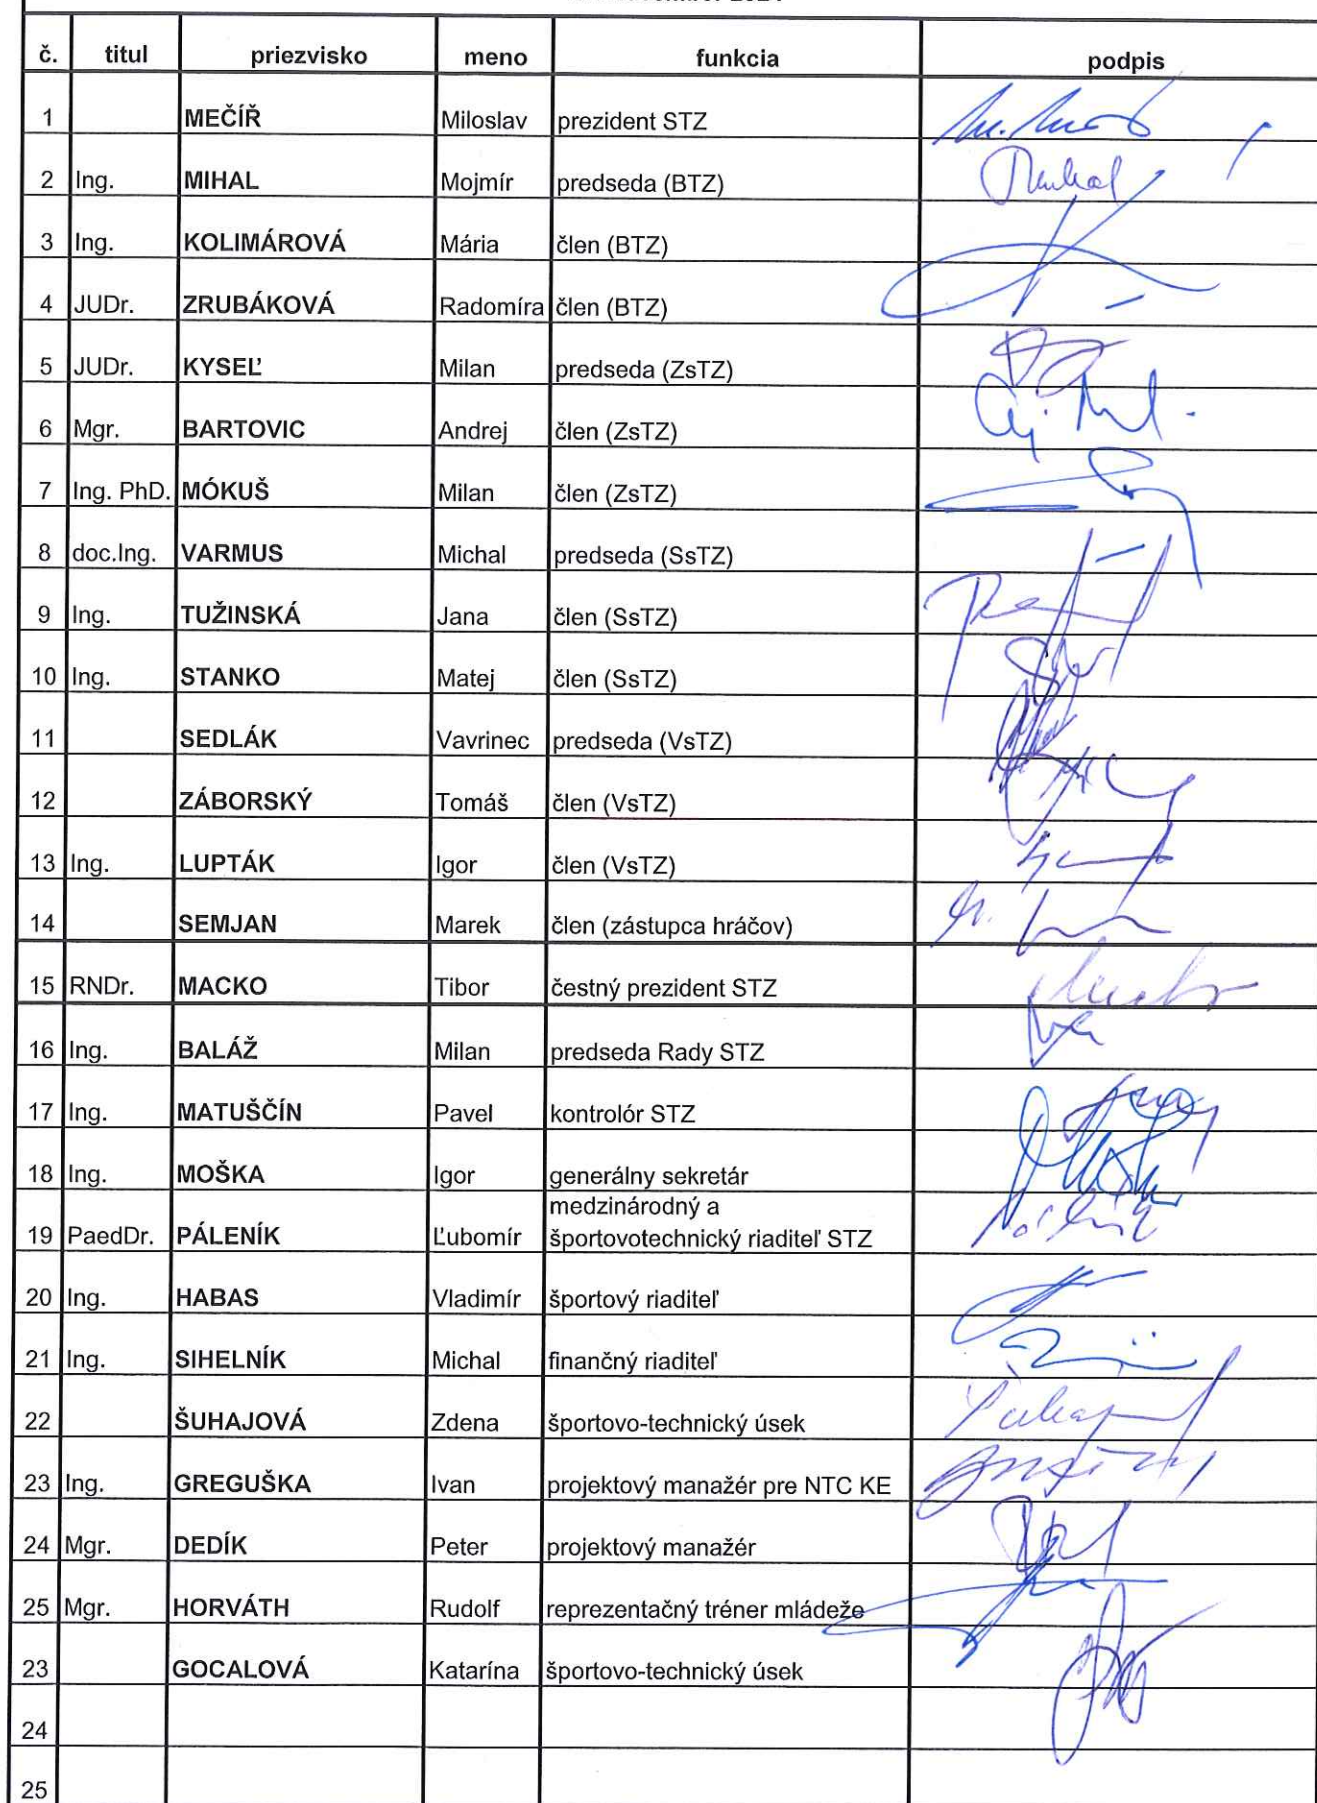 č. titul priezvisko meno funkcia podpis
1 MEČÍŘ Miloslav prezident STZ
2 Ing. MIHAL Mojmír predseda (BTZ)
3 Ing. KOLIMÁROVÁ Mária člen (BTZ)
4 JUDr. ZRUBÁKOVÁ Radomíra člen (BTZ)
5 JUDr. KYSEĽ Milan predseda (ZsTZ)
6 Mgr. BARTOVIC Andrej člen (ZsTZ)
7 Ing. PhD. MÓKUŠ Milan člen (ZsTZ)
8 doc.Ing. VARMUS Michal predseda (SsTZ)
9 Ing. TUŽINSKÁ Jana člen (SsTZ)
10 Ing. STANKO Matej člen (SsTZ)
11 SEDLÁK Vavrinec predseda (VsTZ)
12 ZÁBORSKÝ Tomáš člen (VsTZ)
13 Ing. LUPTÁK Igor člen (VsTZ)
14 SEMJAN Marek člen (zástupca hráčov)
15 RNDr. MACKO Tibor čestný prezident STZ
16 Ing. BALÁŽ Milan predseda Rady STZ
17 Ing. MATUŠČÍN Pavel kontrolór STZ
18 Ing. MOŠKA Igor generálny sekretár
medzinárodný a
19 PaedDr. PÁLENÍK Ľubomír športovotechnický riaditeľ STZ
20 Ing. HABAS Vladimír športový riaditeľ
21 Ing. SIHELNÍK Michal finančný riaditeľ
22 ŠUHAJOVÁ Zdena športovo-technický úsek
23 Ing. GREGUŠKA Ivan projektový manažér pre NTC KE
24 Mgr. DEDÍK Peter projektový manažér
25 Mgr. HORVÁTH Rudolf reprezentačný tréner mládeže
23 GOCALOVÁ Katarína športovo-technický úsek
24
25